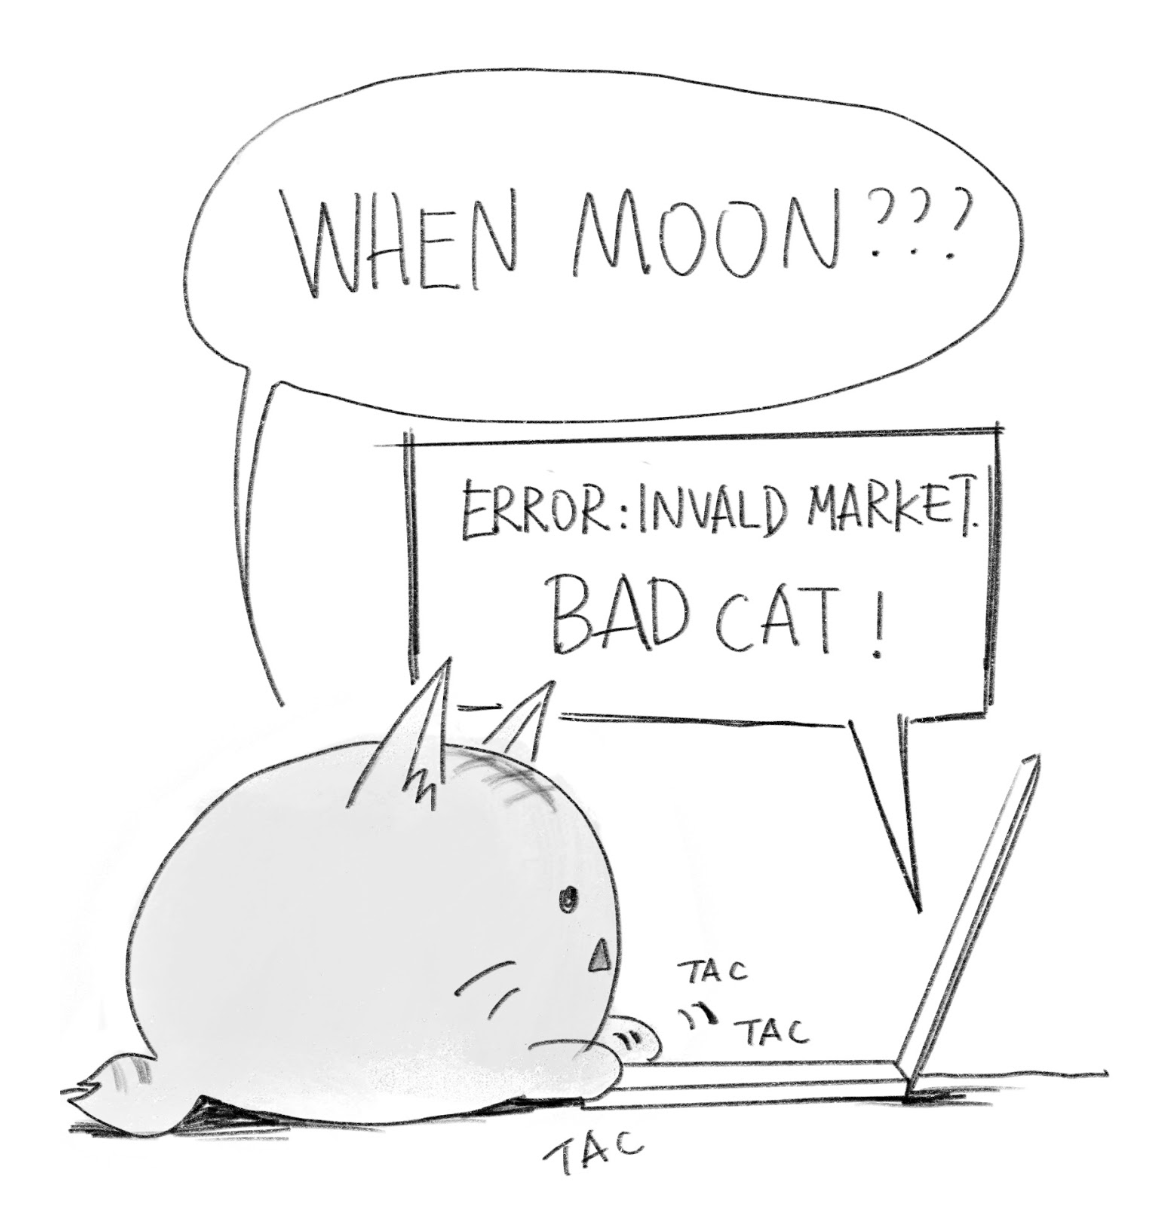 WHEN MOON???
ERROR: INVALD MARKET.
BAD CAT!
TAC
TAC
TAC